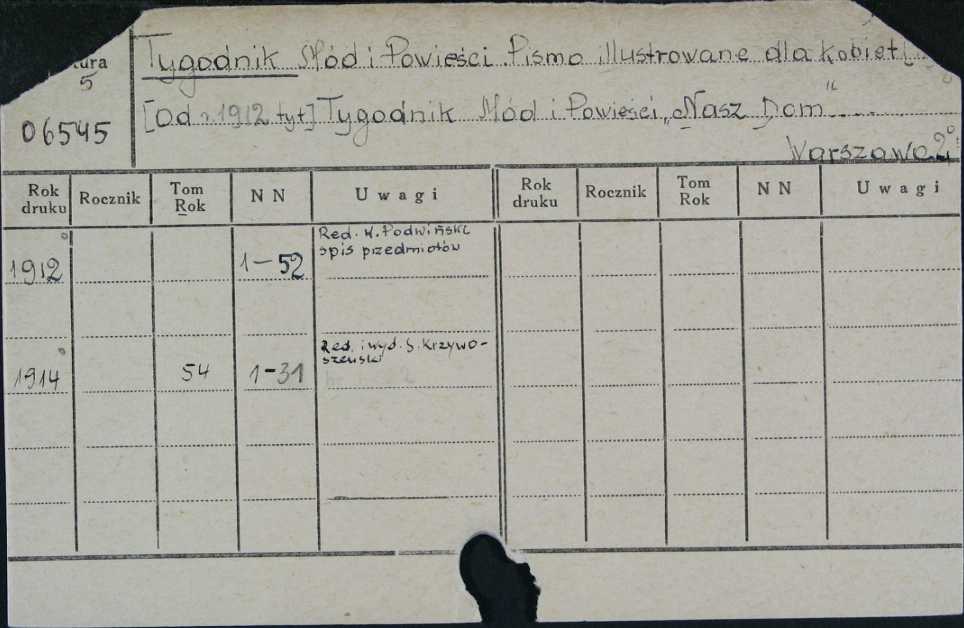 Tygodnik Mód i Powieści. Pismo illustrowane dla kobiet
5
[Od r. 1912 tyt] Tygodnik Mód i Powieści „Nasz Dom"
06545
Warszawa 2°
Rok druku Rocznik Tom Rok NN Uwagi Rok druku Rocznik Tom Rok NN Uwagi
1912 1-52 Red. K. Podwiński
spis przedmiotów
1914 54 1-31 Red. i wyd. S. Krzywo-
szewski